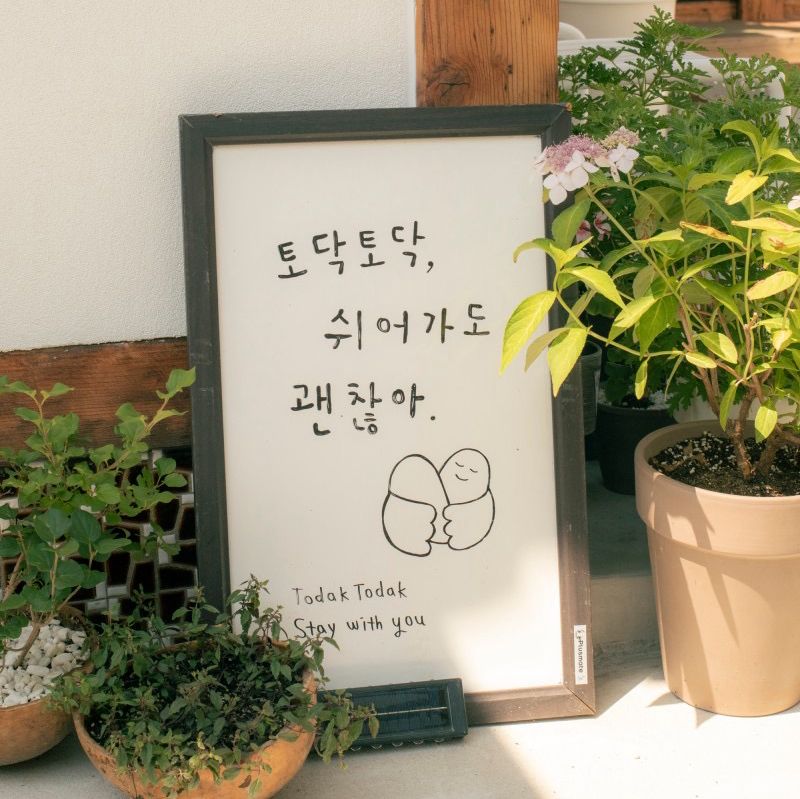 토닥토닥,
쉬어가도
괜찮아.
Todak Todak
Stay with you
Plusmate